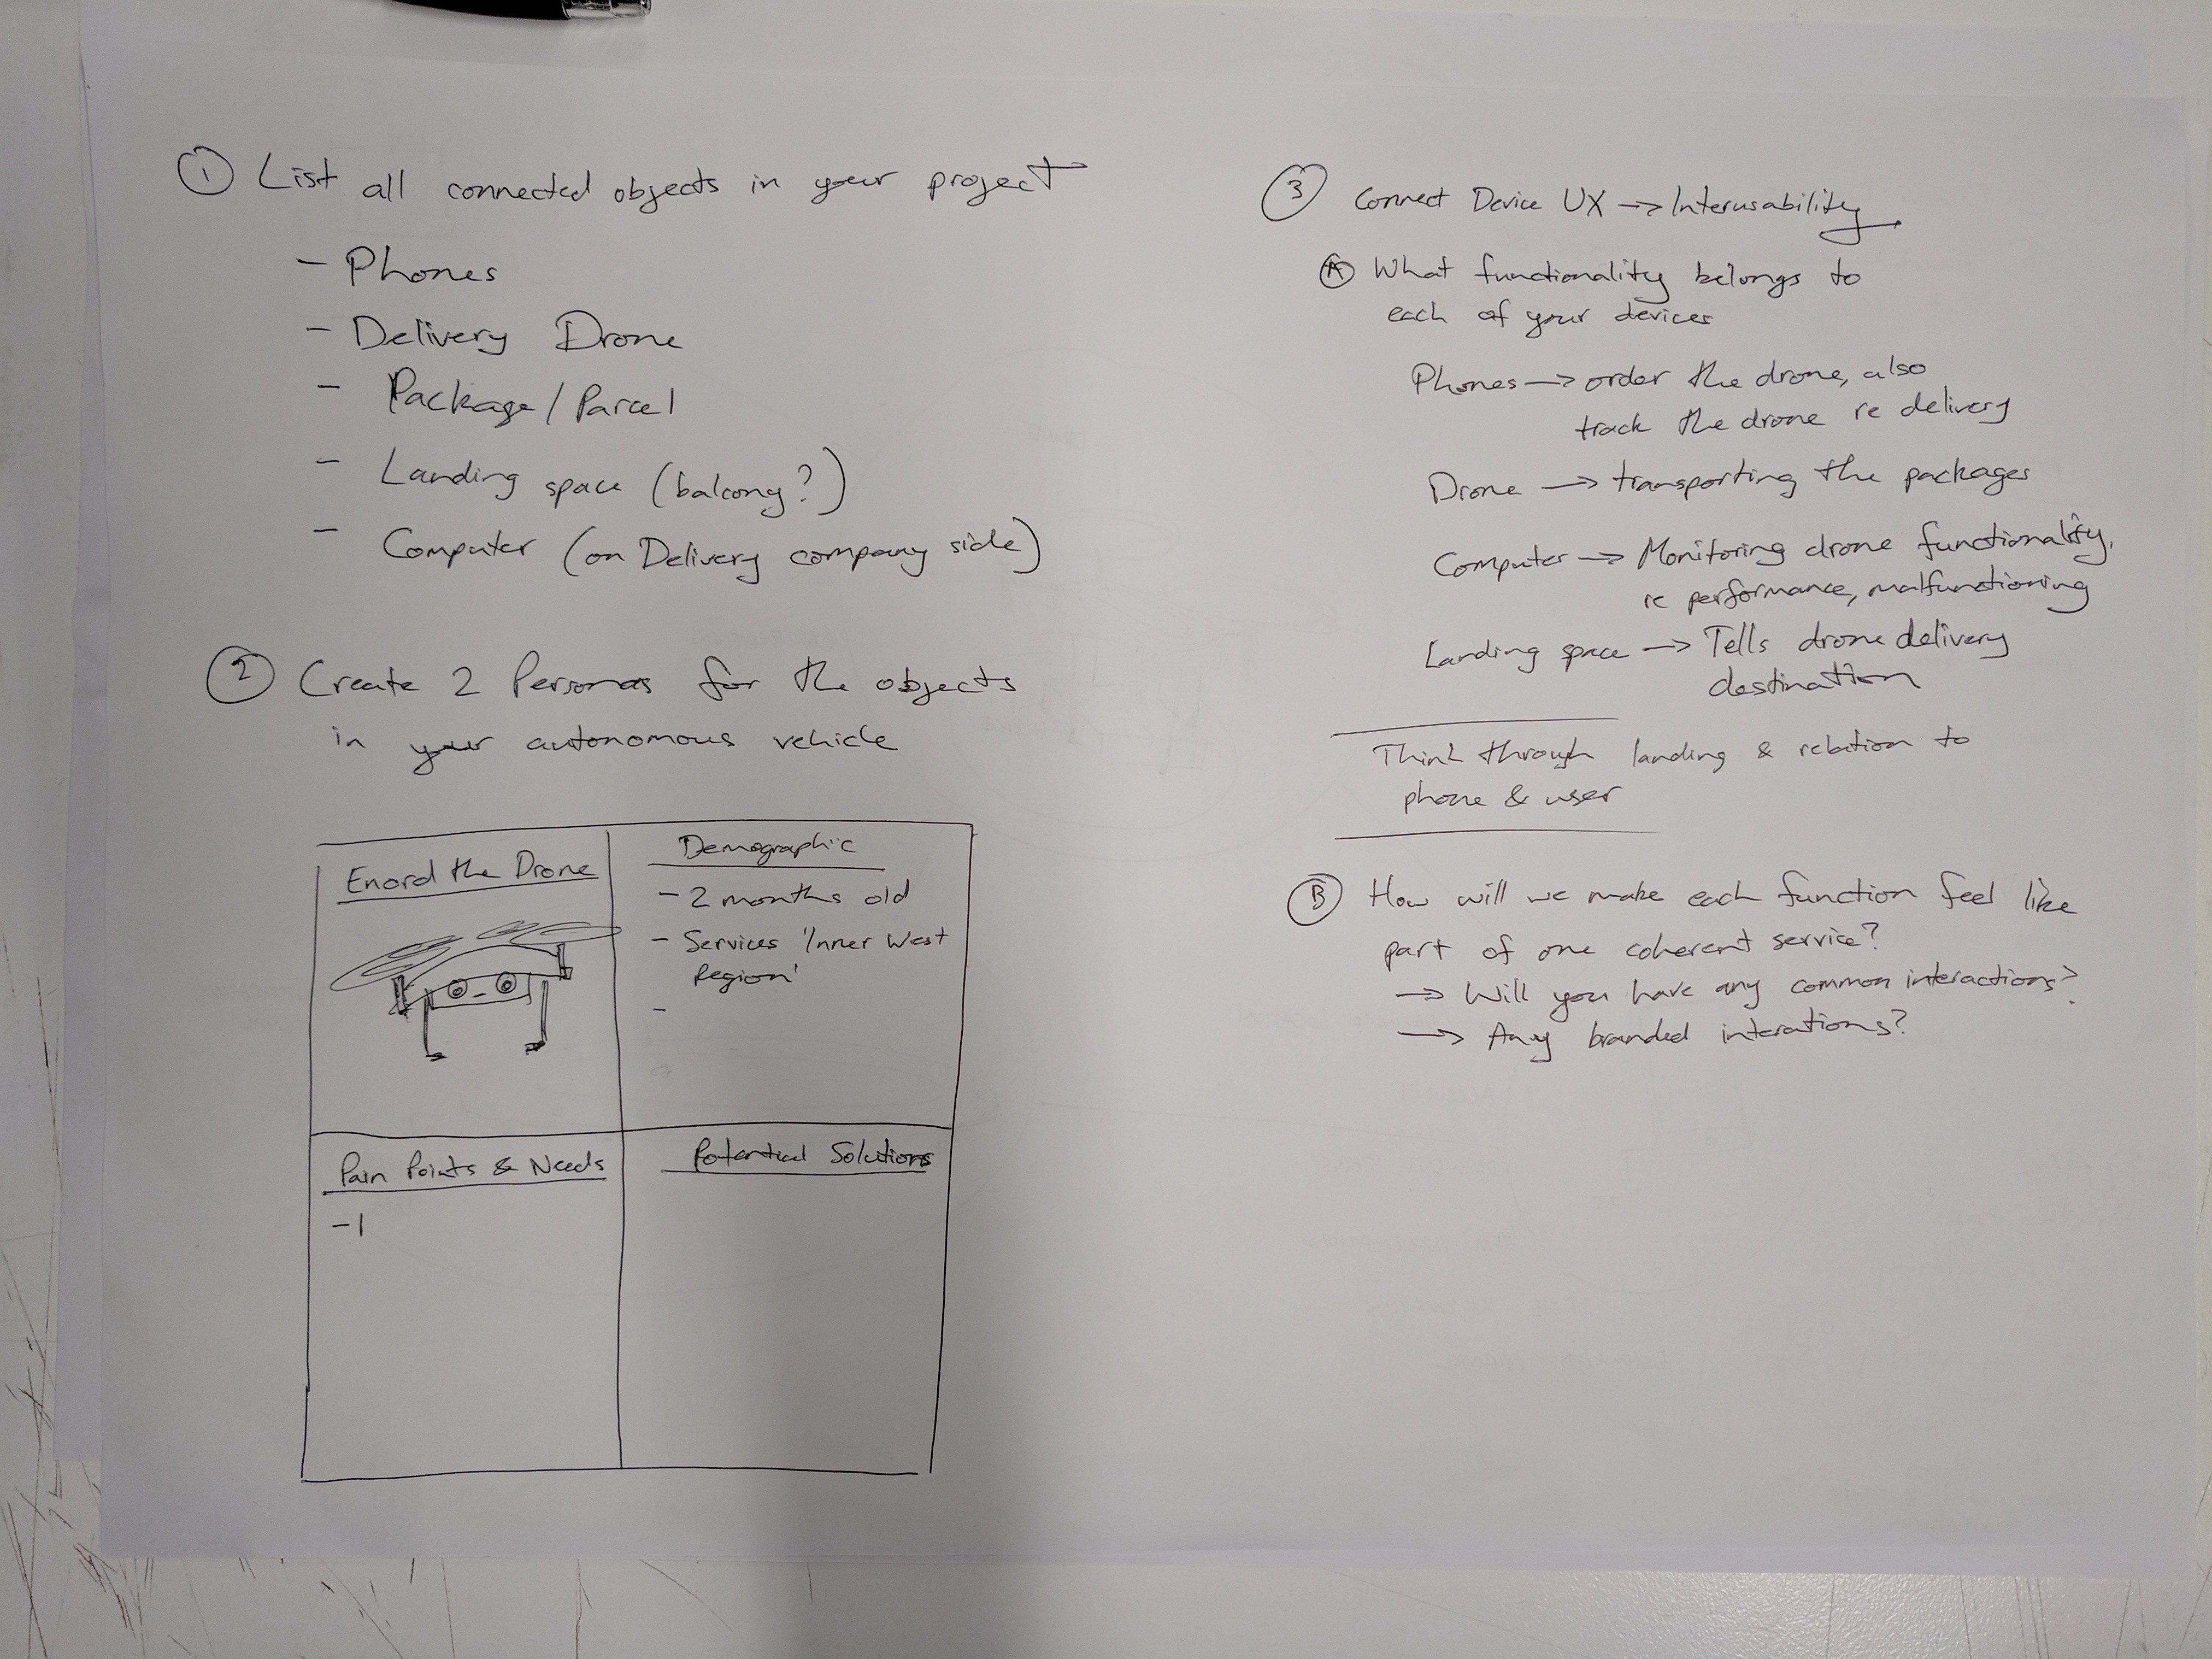 ① List all connected objects in your project
- Phones
- Delivery Drone
- Package / Parcel
- Landing space (balcony?)
- Computer (on Delivery company side)
② Create 2 Personas for the objects
in your autonomous vehicle
Enord the Drone
Demographic
- 2 months old
- Services 'Inner West
Region'
-
Pain Points & Needs
- I
Potential Solutions
③ Connect Device UX → Interusability
Ⓐ What functionality belongs to
each of your devices
Phones → order the drone, also
track the drone re delivery
Drone → transporting the packages
Computer → Monitoring drone functionality,
re performance, malfunctioning
Landing space → Tells drone delivery
destination
Think through landing & relation to
phone & user
Ⓑ How will we make each function feel like
part of one coherent service?
→ Will you have any common interactions?
→ Any branded interations?